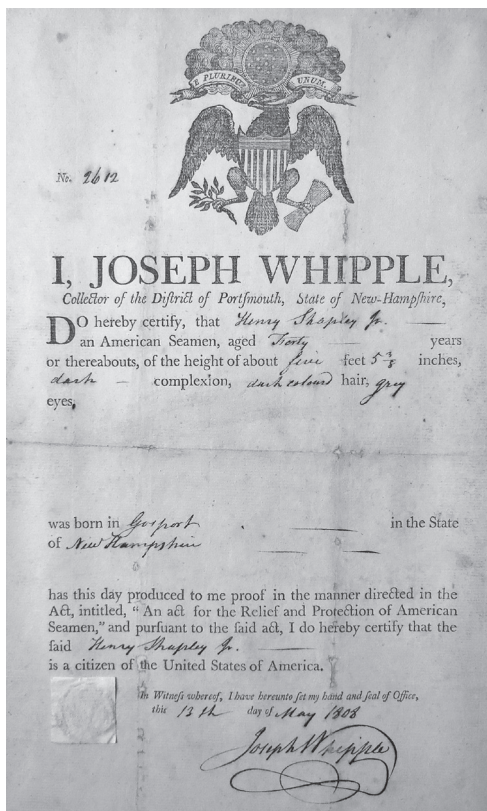 E PLURIBUS UNUM.
No. 2612
I, JOSEPH WHIPPLE,
Collector of the Diſtrict of Portſmouth, State of New-Hampſhire,
DO hereby certify, that Henry Shapley Jr.
an American Seamen, aged Forty years
or thereabouts, of the height of about five feet 5 3/8 inches,
dark complexion, dark coloured hair, grey
eyes,
was born in Gosport in the State
of New Hampshire
has this day produced to me proof in the manner directed in the
Act, intitled, "An act for the Relief and Protection of American
Seamen," and purſuant to the ſaid act, I do hereby certify that the
ſaid Henry Shapley Jr.
is a citizen of the United States of America.
In Witneſs whereof, I have hereunto ſet my hand and ſeal of Office,
this 13th day of May 1808
Joseph Whipple